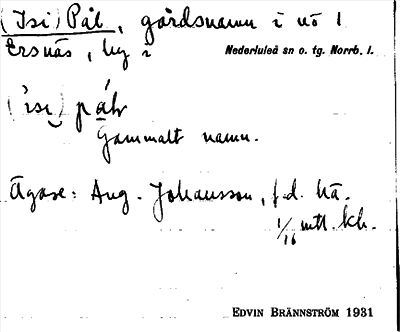 (Isi) Pål, gårdsnamn i nö 1
Ersnäs, by i Nederluleå sn o. tg. Norrb. l.
Gammalt namn.
Ägare: Aug. Johansson, f.d. hä.
1/16 mtl. kh.
EDVIN BRÄNNSTRÖM 1931